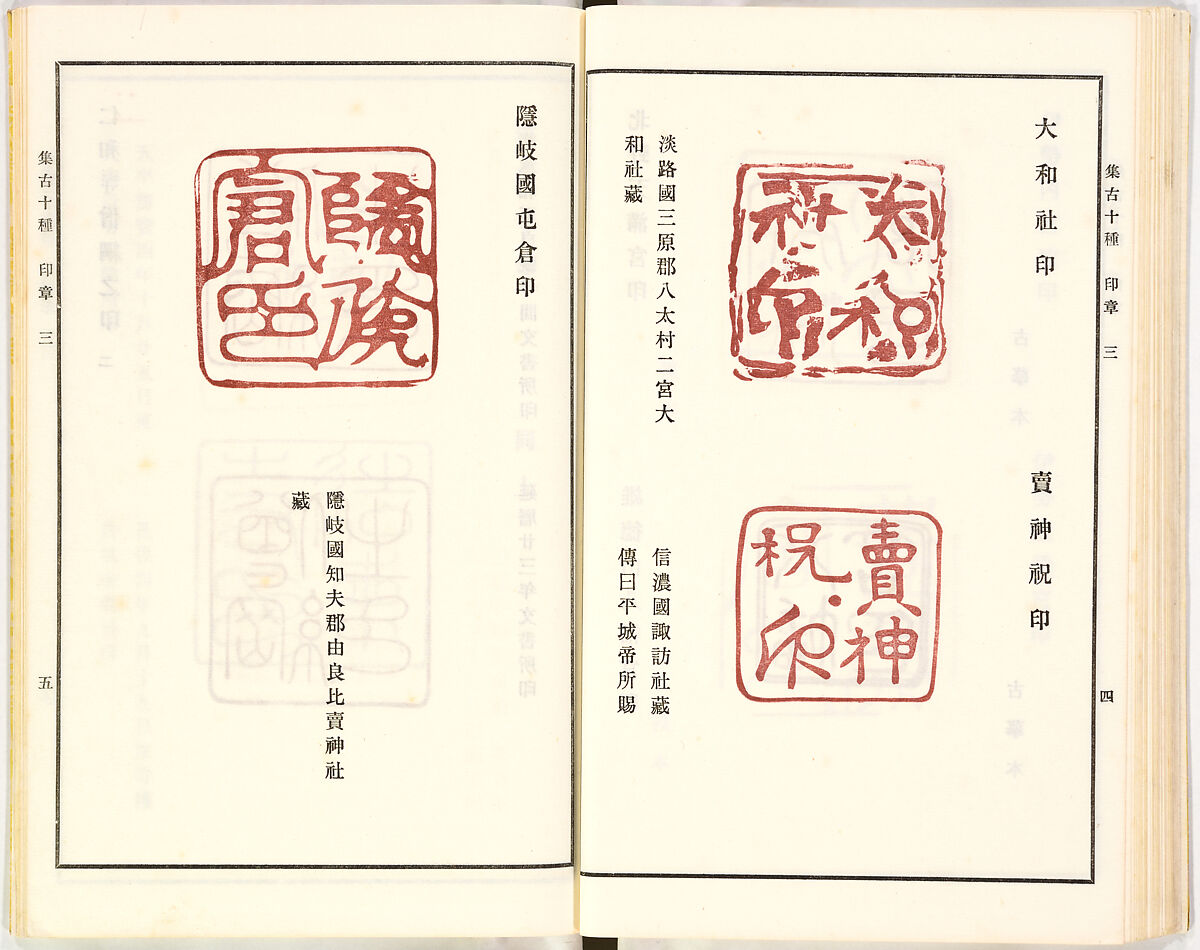 集古十種 印章 三
四
大和社印
大和
社印
淡路國三原郡八太村二宮大
和社藏
賣神祝印
賣神
祝印
信濃國諏訪社藏
傳曰平城帝所賜
隱岐國屯倉印
隱岐國知夫郡由良比賣神社
藏
集古十種 印章 三
五